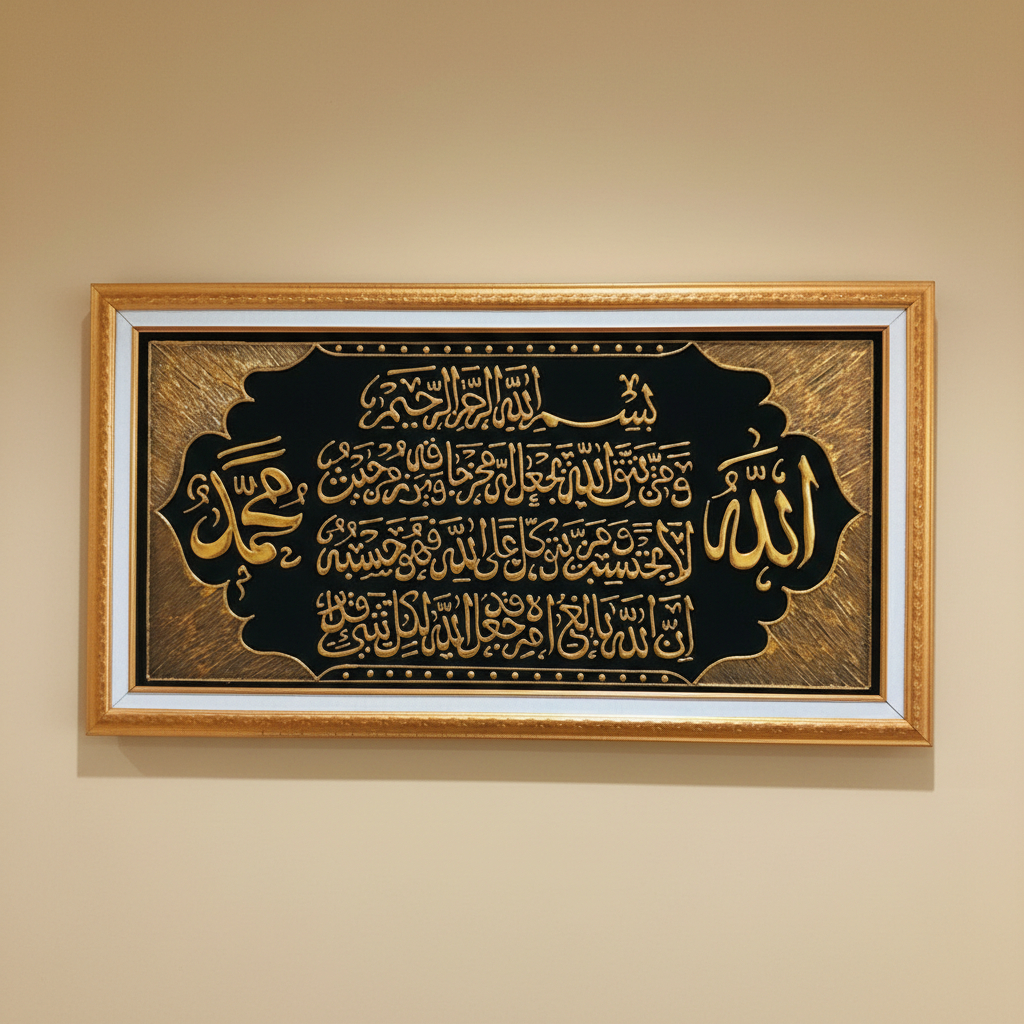 الله
بسم الله الرحمن الرحيم
ومن يتق الله يجعل له مخرجا ويرزقه من حيث
لا يحتسب ومن يتوكل على الله فهو حسبه
إن الله بالغ امره قد جعل الله لكل شيء قدرا
محمد